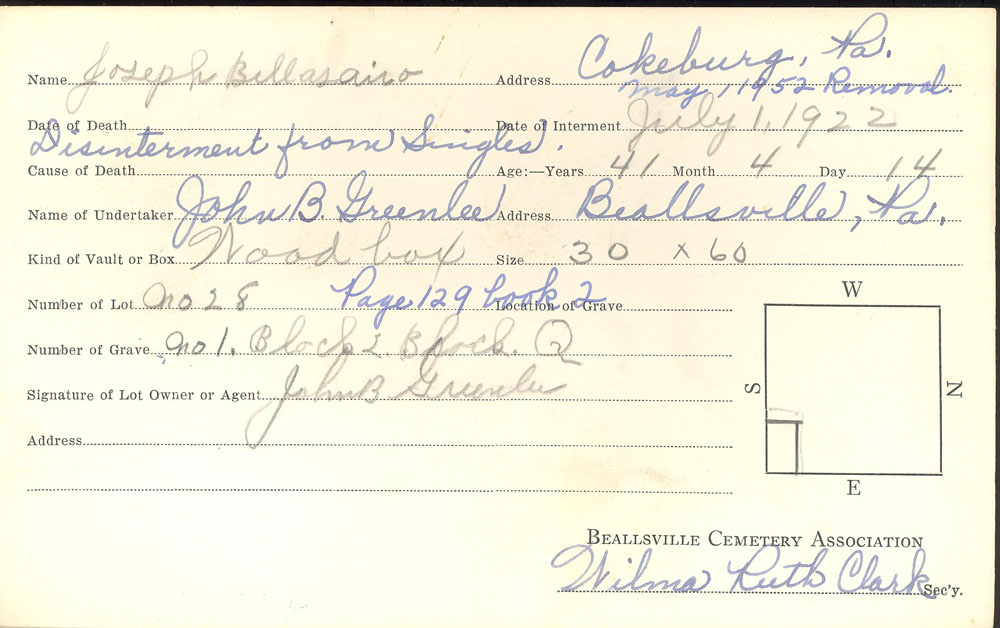 Name Joseph Bellasairo Address Cokeburg, Pa.
May 1, 1952 Removal.
Date of Death Date of Interment July 1, 1922
Disinterment from Singles.
Cause of Death Age:—Years 41 Month 4 Day 14
Name of Undertaker John B. Greenlee Address Beallsville, Pa.
Kind of Vault or Box Wood box Size 30 x 60
Number of Lot No 28 Page 129 book 2 Location of Grave
Number of Grave No 1. Block 2. Block. Q
Signature of Lot Owner or Agent John B Greenlee
Address
W
S
N
E
BEALLSVILLE CEMETERY ASSOCIATION
Wilma Ruth Clark Sec'y.